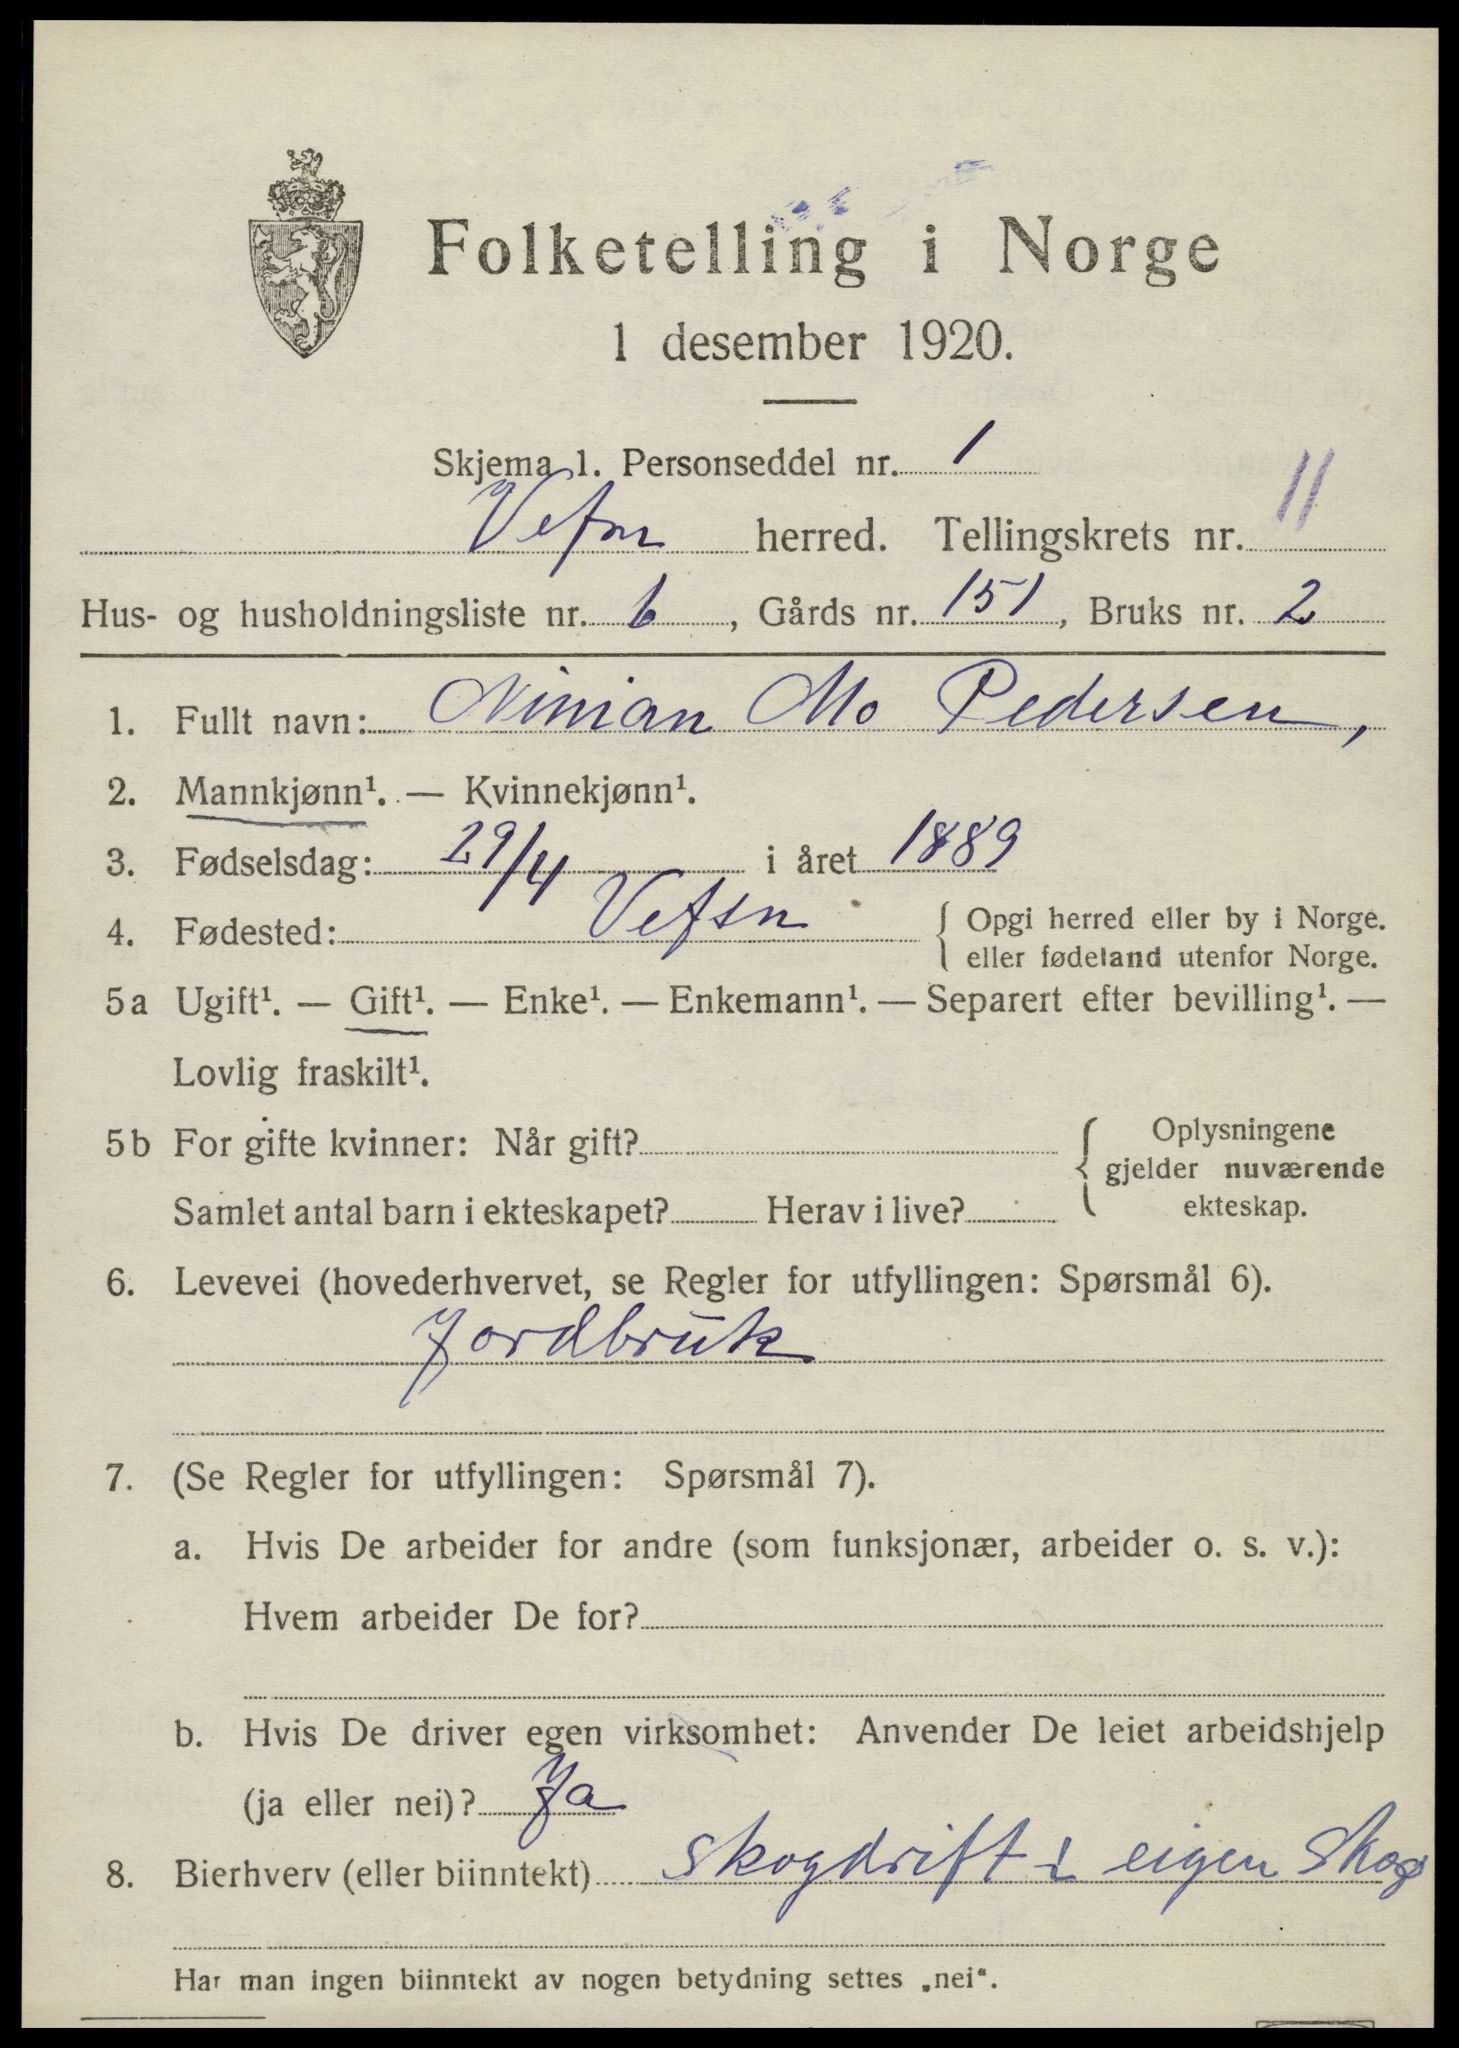 Folketelling i Norge
1 desember 1920.
Skjema 1. Personseddel nr. 1
Vefsn herred. Tellingskrets nr. 11
Hus- og husholdningsliste nr. 6, Gårds nr. 151, Bruks nr. 2
1. Fullt navn: Ninian Mo Pedersen,
2. Mannkjønn¹. — Kvinnekjønn¹.
3. Fødselsdag: 29/4 i året 1889
4. Fødested: Vefsn { Opgi herred eller by i Norge.
eller fødeland utenfor Norge.
5a Ugift¹. — Gift¹. — Enke¹. — Enkemann¹. — Separert efter bevilling¹. —
Lovlig fraskilt¹.
5b For gifte kvinner: Når gift? { Oplysningene
gjelder nuværende
Samlet antal barn i ekteskapet? Herav i live? ekteskap.
6. Levevei (hovederhvervet, se Regler for utfyllingen: Spørsmål 6).
Jordbruk
7. (Se Regler for utfyllingen: Spørsmål 7).
a. Hvis De arbeider for andre (som funksjonær, arbeider o. s. v.):
Hvem arbeider De for?
b. Hvis De driver egen virksomhet: Anvender De leiet arbeidshjelp
(ja eller nei)? Ja
8. Bierhverv (eller biinntekt) Skogdrift i eigen Skog
Har man ingen biinntekt av nogen betydning settes „nei“.